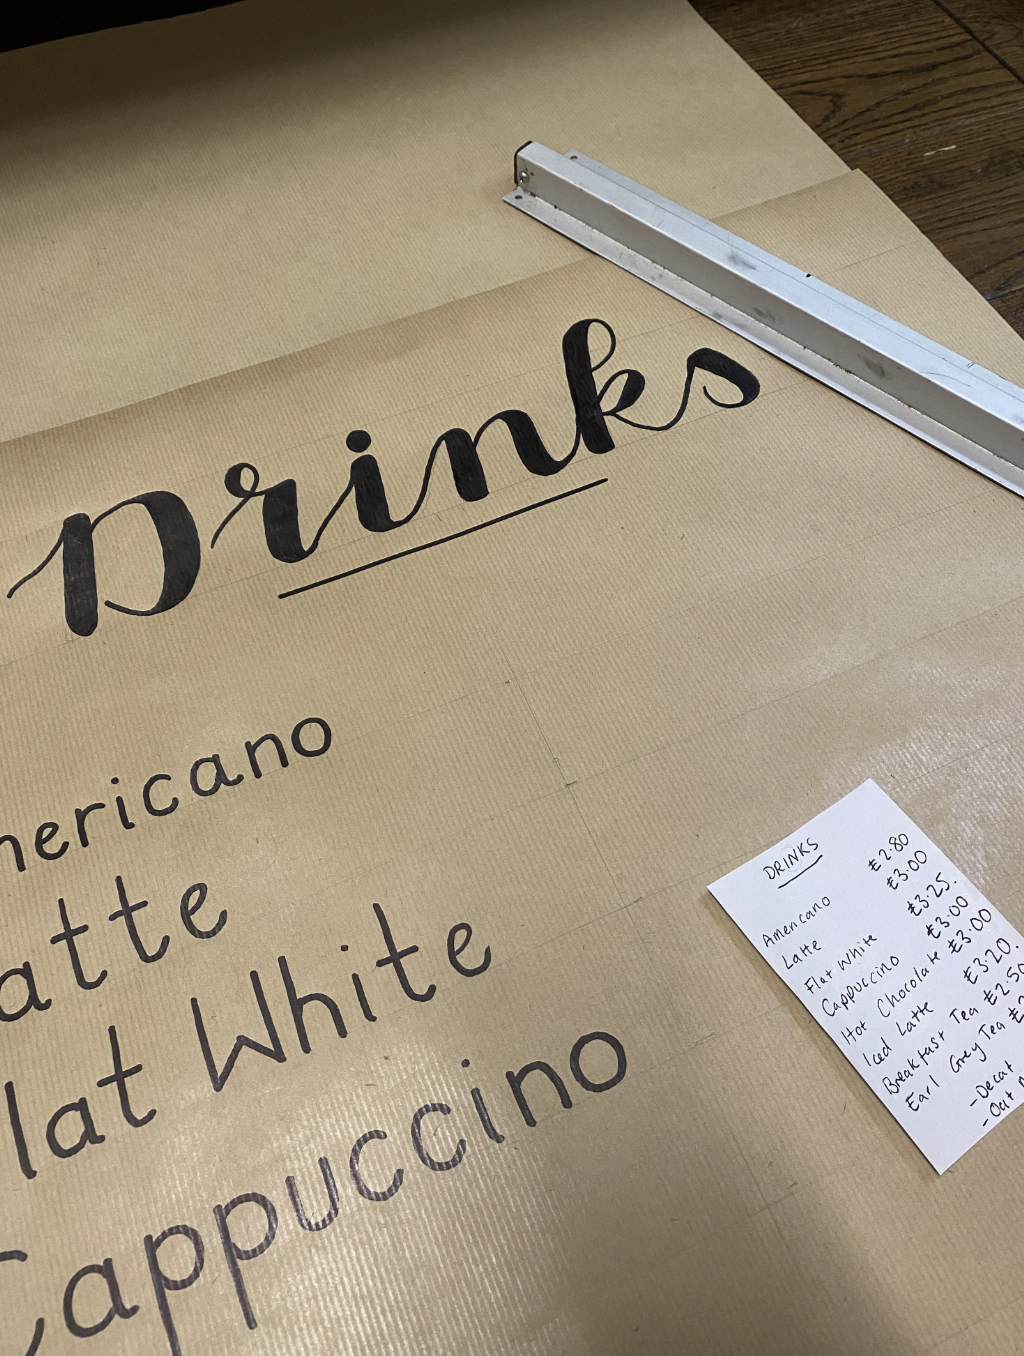 Drinks
mericano
atte
lat White
Cappuccino
DRINKS
Americano £2.80
Latte £3.00
Flat White £3.25.
Cappuccino £3.00
Hot Chocolate £3.00
Iced Latte £3.20.
Breakfast Tea £2.50
Earl Grey Tea £2
-Decaf
-Oat